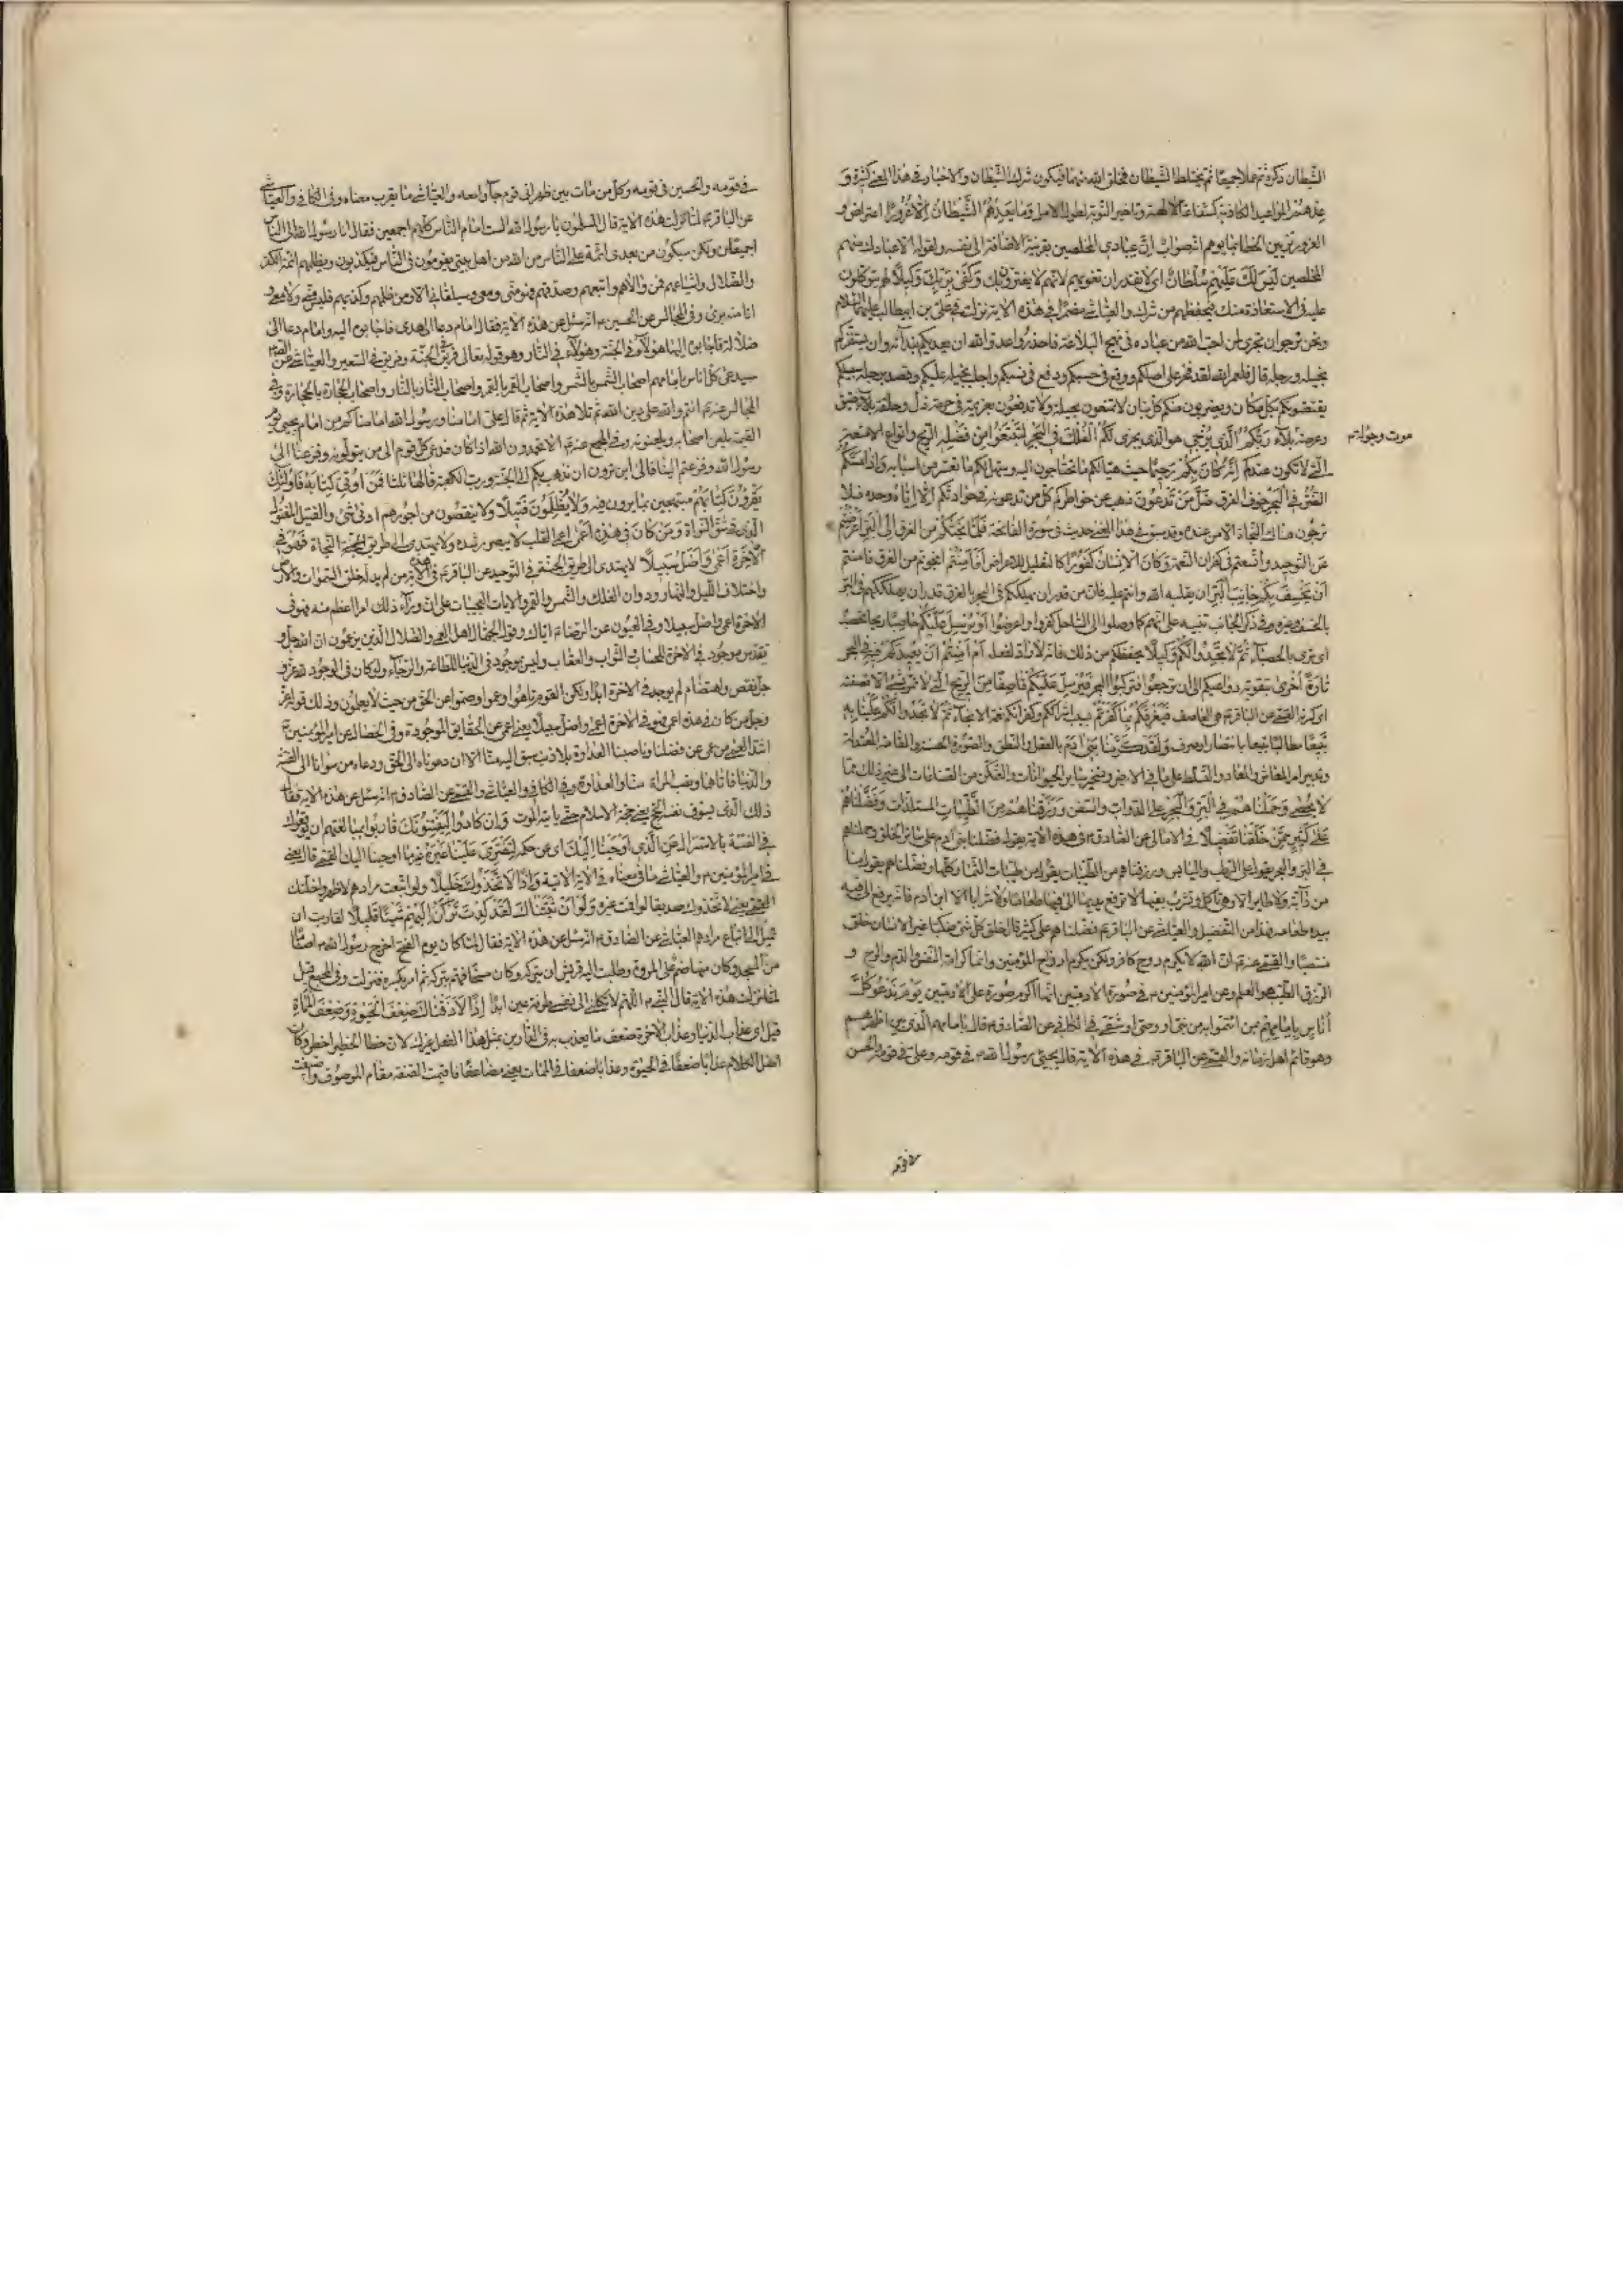 الشيطان ذكره ثم عملا جميعا ثم يختلط الشيطان فيخلق الله منهما فيكون شرك الشيطان والاخبار في هذا المعنى كثيرة وَ
عِدْهُمْ المواعيد الكاذبة كشفاعة الالهة وتاخير التوبة لطول الامل وَمَا يَعِدُهُمُ الشَّيْطَانُ اِلَّا غُرُورًا اعتراض و
الغرور تزيين الخطا بما يوهم انه صواب اِنَّ عِبَادِي المخلصين بقرينة الاضافة الى نفسه ولقوله الا عبادك منهم
المخلصين لَيْسَ لَكَ عَلَيْهِمْ سُلْطَانٌ اي لا تقدر ان تغويهم لانهم لا يغترون بك وَكَفَى بِرَبِّكَ وَكِيلًا لهم يتوكلون
عليه في الاستعاذة منك فيحفظهم من شرك والعياشي مضمرا في هذه الاية نزلت في علي بن ابيطالب عليهما السلام
ونحن نرجو ان تجري لمن احب الله من عباده في نهج البلاغة فاحذروا عدو الله ان يعديكم بدائه وان يستفزكم
بخيله ورجله قال فلعمر الله لقد فخر على اصلكم ووقع في حسبكم ودفع في نسبكم واجلب بخيله عليكم وقصد برجله سبيلكم
يقتنصونكم بكل مكان ويضربون منكم كل بنان لا تمتنعون بحيلة ولا تدفعون بعزيمة في حومة ذل وحلقة ضيق
وعرصة بلاء رَبُّكُمُ الَّذِي يُزْجِي هو الذي يجري لَكُمُ الْفُلْكَ فِي الْبَحْرِ لِتَبْتَغُوا مِنْ فَضْلِهِ الربح وانواع الامتعة
موت وجولة م
التي لا تكون عندكم اِنَّهُ كَانَ بِكُمْ رَحِيمًا حيث هيا لكم ما تحتاجون اليه وسهل لكم ما تعسر من اسبابه وَاِذَا مَسَّكُمُ
الضُّرُّ فِي الْبَحْرِ خوف الغرق ضَلَّ مَنْ تَدْعُونَ ذهب عن خواطركم كل من تدعونه في حوادثكم اِلَّا اِيَّاهُ وحده فلا
ترجون هناك النجاة الا من عنده وقد سبق في هذا المعنى حديث في سورة الفاتحة فَلَمَّا نَجَّاكُمْ من الغرق اِلَى الْبَرِّ اَعْرَضْتُمْ
عن التوحيد واتسعتم في كفران النعمة وَكَانَ الْاِنْسَانُ كَفُورًا كالتعليل للاعراض اَفَاَمِنْتُمْ انجوتم من الغرق فامنتم
اَنْ يَخْسِفَ بِكُمْ جَانِبَ الْبَرِّ ان يقلبه الله وانتم عليه فان من قدر ان يهلككم في البحر بالغرق قدر ان يهلككم في البر
بالخسف وغيره وفي ذكر الجانب تنبيه على انهم كما وصلوا الى الساحل كفروا واعرضوا اَوْ يُرْسِلَ عَلَيْكُمْ حَاصِبًا ريحا تحصب
اي ترمي بالحصباء ثُمَّ لَا تَجِدُوا لَكُمْ وَكِيلًا يحفظكم من ذلك فانه لا راد لفعله اَمْ اَمِنْتُمْ اَنْ يُعِيدَكُمْ فِيهِ في البحر
تَارَةً اُخْرَى بتقوية دواعيكم الى ان ترجعوا فتركبوا البحر فَيُرْسِلَ عَلَيْكُمْ قَاصِفًا مِنَ الرِّيحِ التي لا تمر بشيء الا قصفته
اي كسرته القمي عن الباقر ع هي العاصف فَيُغْرِقَكُمْ بِمَا كَفَرْتُمْ بسبب اشراككم وكفرانكم نعمة الانجاء ثُمَّ لَا تَجِدُوا لَكُمْ عَلَيْنَا بِهِ
تَبِيعًا مطالبا يتبعنا بانتصار او صرف وَلَقَدْ كَرَّمْنَا بَنِي اٰدَمَ بالعقل والنطق والصورة الحسنة والقامة المعتدلة
وتدبير امر المعاش والمعاد والتسلط على ما في الارض وتسخير ساير الحيوانات والتمكن من الصناعات الى غير ذلك مما
لا يحصى وَحَمَلْنَاهُمْ فِي الْبَرِّ وَالْبَحْرِ على الدواب والسفن وَرَزَقْنَاهُمْ مِنَ الطَّيِّبَاتِ المستلذات وَفَضَّلْنَاهُمْ
عَلَى كَثِيرٍ مِمَّنْ خَلَقْنَا تَفْضِيلًا في الامالي عن الصادق ع في هذه الاية يقول فضلنا بني ادم على سائر الخلق وحملناهم
في البر والبحر يقول على الرطب واليابس ورزقناهم من الطيبات يقول من طيبات الثمار كلها وفضلناهم يقول ليس
من دابة ولا طاير الا وهي تاكل وتشرب بفيها لا ترفع بيدها الى فيها طعاما ولا شرابا الا ابن ادم فانه يرفع الى فيه
بيده طعامه فهذا من التفضيل والعياشي عن الباقر ع فضلناهم على كثير قال خلق كل شيء منكبا غير الانسان خلق
منتصبا والقمي عنه ع ان الله لا يكرم روح كافر ولكن يكرم ارواح المؤمنين وانما كرامة النفس والدم والروح و
الرزق الطيب هو العلم وعن امير المؤمنين ع في صورة الادميين انها اكرم صورة على الادميين يَوْمَ نَدْعُو كُلَّ
اُنَاسٍ بِاِمَامِهِمْ بمن ائتموا به من نبي او وصي او شقي في الكافي عن الصادق ع قال بامامهم الذي بين اظهرهم
وهو قائم اهل زمانه والقمي عن الباقر ع في هذه الاية قال يجيء رسول الله ص في قومه وعلي في قومه والحسن
في قومه
في قومه والحسين في قومه وكل من مات بين ظهراني قوم جاؤا معه والعياشي ما يقرب معناه وفي الكافي والعياشي
عن الباقر ع لما نزلت هذه الاية قال المسلمون يا رسول الله الست امام الناس كلهم اجمعين فقال انا رسول الله الى الناس
اجمعين ولكن سيكون من بعدي ائمة على الناس من الله من اهل بيتي يقومون في الناس فيكذبون ويظلمهم ائمة الكفر
والضلال واشياعهم فمن والاهم واتبعهم وصدقهم فهو مني ومعي وسيلقاني الا ومن ظلمهم وكذبهم فليس مني ولا معي و
انا منه بريء وفي المجالس عن الحسين ع انه سئل عن هذه الاية فقال امام دعا الى هدى فاجابوه اليه وامام دعا الى
ضلالة فاجابوه اليها هؤلاء في الجنة وهؤلاء في النار وهو قوله تعالى فريق في الجنة وفريق في السعير والعياشي عن الصادق ع
سيدعى كل اناس بامامهم اصحاب الشمس بالشمس واصحاب القمر بالقمر واصحاب النار بالنار واصحاب الحجارة بالحجارة وفي
المجالس عنه ع انتم والله على دين الله ثم تلا هذه الاية ثم قال علي امامنا ورسول الله امامنا كم من امام يجيء يوم
القيمة يلعن اصحابه ويلعنونه وفي المجمع عنه ع الا تحمدون الله اذا كان فدعي كل قوم الى من يتولونه وفزعنا الى
رسول الله وفزعتم الينا فالى اين ترون ان نذهب بكم الى الجنة ورب الكعبة قالها ثلثا فَمَنْ اُوتِيَ كِتَابَهُ فَاُولٰئِكَ
يَقْرَؤُنَ كِتَابَهُمْ مبتهجين بما يرون فيه وَلَا يُظْلَمُونَ فَتِيلًا ولا ينقصون من اجورهم ادنى شيء والفتيل المفتول
الذي في شق النواة وَمَنْ كَانَ فِي هٰذِهِ اَعْمَى اعمى القلب لا يبصر رشده ولا يهتدي الى طريق النجاة فَهُوَ فِي
الْاٰخِرَةِ اَعْمَى وَاَضَلُّ سَبِيلًا لا يهتدي الى طريق الجنة في التوحيد عن الباقر ع في هذه الاية من لم يدله خلق السموات والارض
واختلاف الليل والنهار ودوران الفلك والشمس والقمر والايات العجيبات على ان وراء ذلك امرا اعظم منه فهو في
الاخرة اعمى واضل سبيلا وفي العيون عن الرضا ع اياك وقول الجهال اهل العمى والضلال الذين يزعمون ان الله جل و
تقدس موجود في الاخرة للحساب والثواب والعقاب وليس بموجود في الدنيا للطاعة والرجاء ولو كان في الوجود لله عز و
جل نقص واهتضام لم يوجد في الاخرة ابدا ولكن القوم تاهوا وعموا وصموا عن الحق من حيث لا يعلمون وذلك قوله عز
وجل من كان في هذه اعمى فهو في الاخرة اعمى واضل سبيلا يعني اعمى عن الحقايق الموجودة وفي الخصال عن امير المؤمنين ع
اشد العمى من عمي عن فضلنا وناصبنا العداوة بلا ذنب سبق اليه منا الا ان دعوناه الى الحق ودعاه من سوانا الى الفتنة
والدنيا فاتاها ونصب البراءة منا والعداوة وفي الكافي والعياشي والقمي عن الصادق ع انه سئل عن هذه الاية فقال
ذلك الذي يسوف نفسه الحج يعني حجة الاسلام حتى ياتيه الموت وَاِنْ كَادُوا لَيَفْتِنُونَكَ قاربوا بمبالغتهم ان يوقعوك
في الفتنة بالاستنزال عَنِ الَّذِي اَوْحَيْنَا اِلَيْكَ اي عن حكمه لِتَفْتَرِيَ عَلَيْنَا غَيْرَهُ غير ما اوحينا اليك القمي قال يعني
في امير المؤمنين ع والعياشي ما في معناه في الاية الاتية وَاِذًا لَاتَّخَذُوكَ خَلِيلًا ولو اتبعت مرادهم لاظهروا خلتك
القمي يعني لاتخذوك صديقا لو اقمت غيره وَلَوْلَا اَنْ ثَبَّتْنَاكَ لَقَدْ كِدْتَ تَرْكَنُ اِلَيْهِمْ شَيْئًا قَلِيلًا لقاربت ان
تميل الى اتباع مرادهم العياشي عن الصادق ع انه سئل عن هذه الاية فقال لما كان يوم الفتح اخرج رسول الله ص اصناما
من المسجد وكان منها صنم على المروة وطلبت اليه قريش ان يتركه وكان مستحيا فهم بتركه ثم امر بكسره فنزلت وفي المجمع قيل
لما نزلت هذه الاية قال النبي ص اللهم لا تكلني الى نفسي طرفة عين ابدا اِذًا لَاَذَقْنَاكَ ضِعْفَ الْحَيٰوةِ وَضِعْفَ الْمَمَاتِ
قيل اي عذاب الدنيا وعذاب الاخرة ضعف ما يعذب به في الدارين بمثل هذا الفعل غيرك لان خطا الخطير اخطر وكان
اصل الكلام عذابا ضعفا في الحيوة وعذابا ضعفا في الممات يعني مضاعفا فاقيمت الصفة مقام الموصوف واضيفت